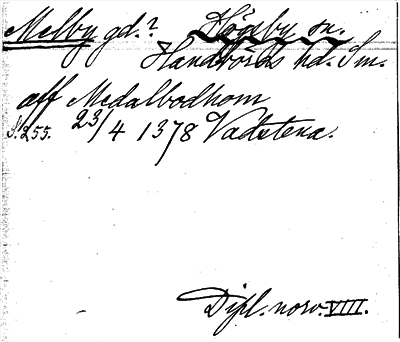 Melby gd.? Högsby sn.
Handbörds hd. Sm.
aff Medalbodhom
S. 255. 23/4 1378 Vadstena.
Dipl. norv. VIII.